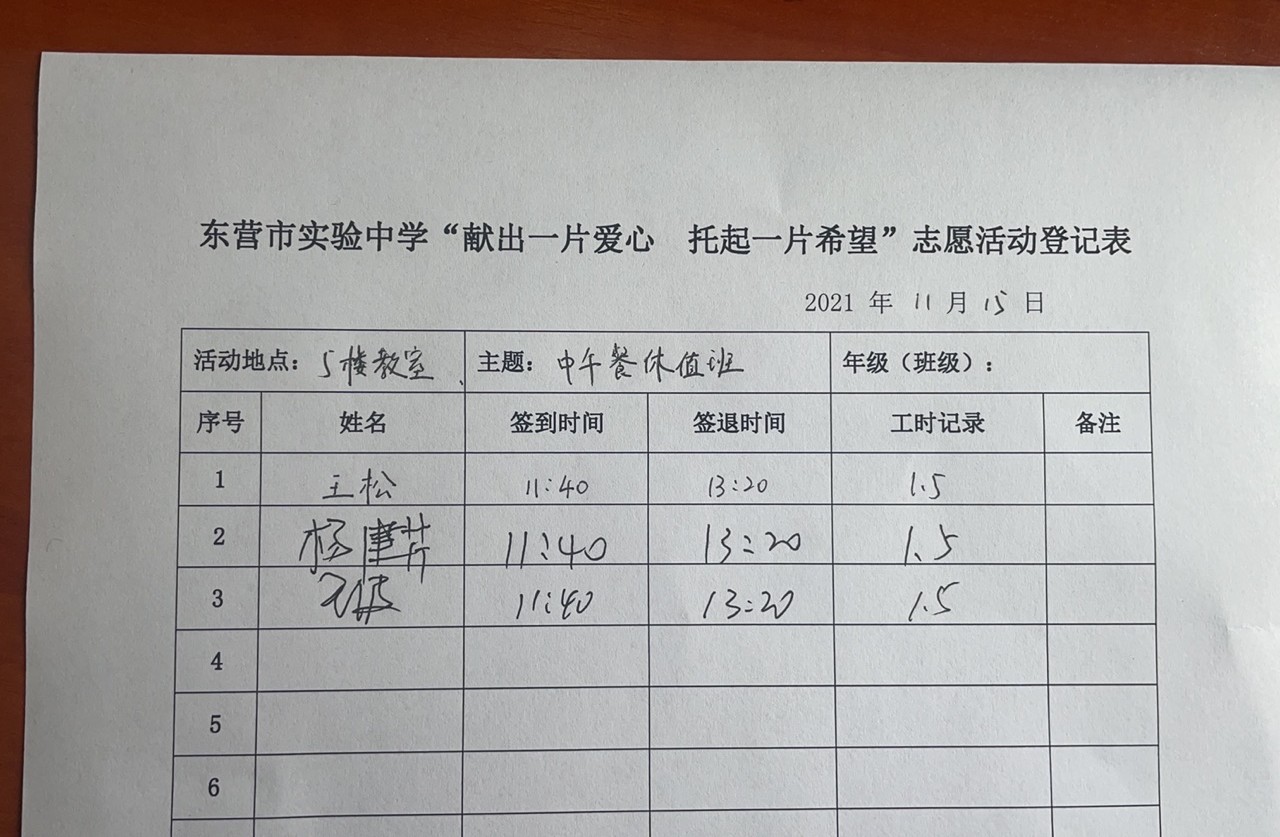 东营市实验中学“献出一片爱心 托起一片希望”志愿活动登记表
2021 年 11 月 15 日
活动地点：5楼教室 主题：中午餐休值班 年级（班级）：
序号 姓名 签到时间 签退时间 工时记录 备注
1 王松 11:40 13:20 1.5
2 杨 11:40 13:20 1.5
3 11:40 13:20 1.5
4
5
6